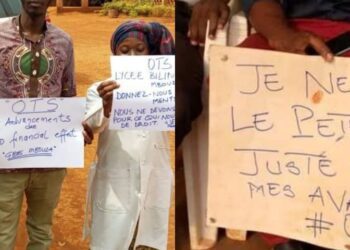 OTS
Advancements
des
financial effet
OTS
LYCEE BILIN
DONNEZ-NOUS
MENTS
NOUS NE DEVONS
POUR CE QUI NOU
DE DROIT.
JE NE
LE PET
JUSTE
MES AVA
#